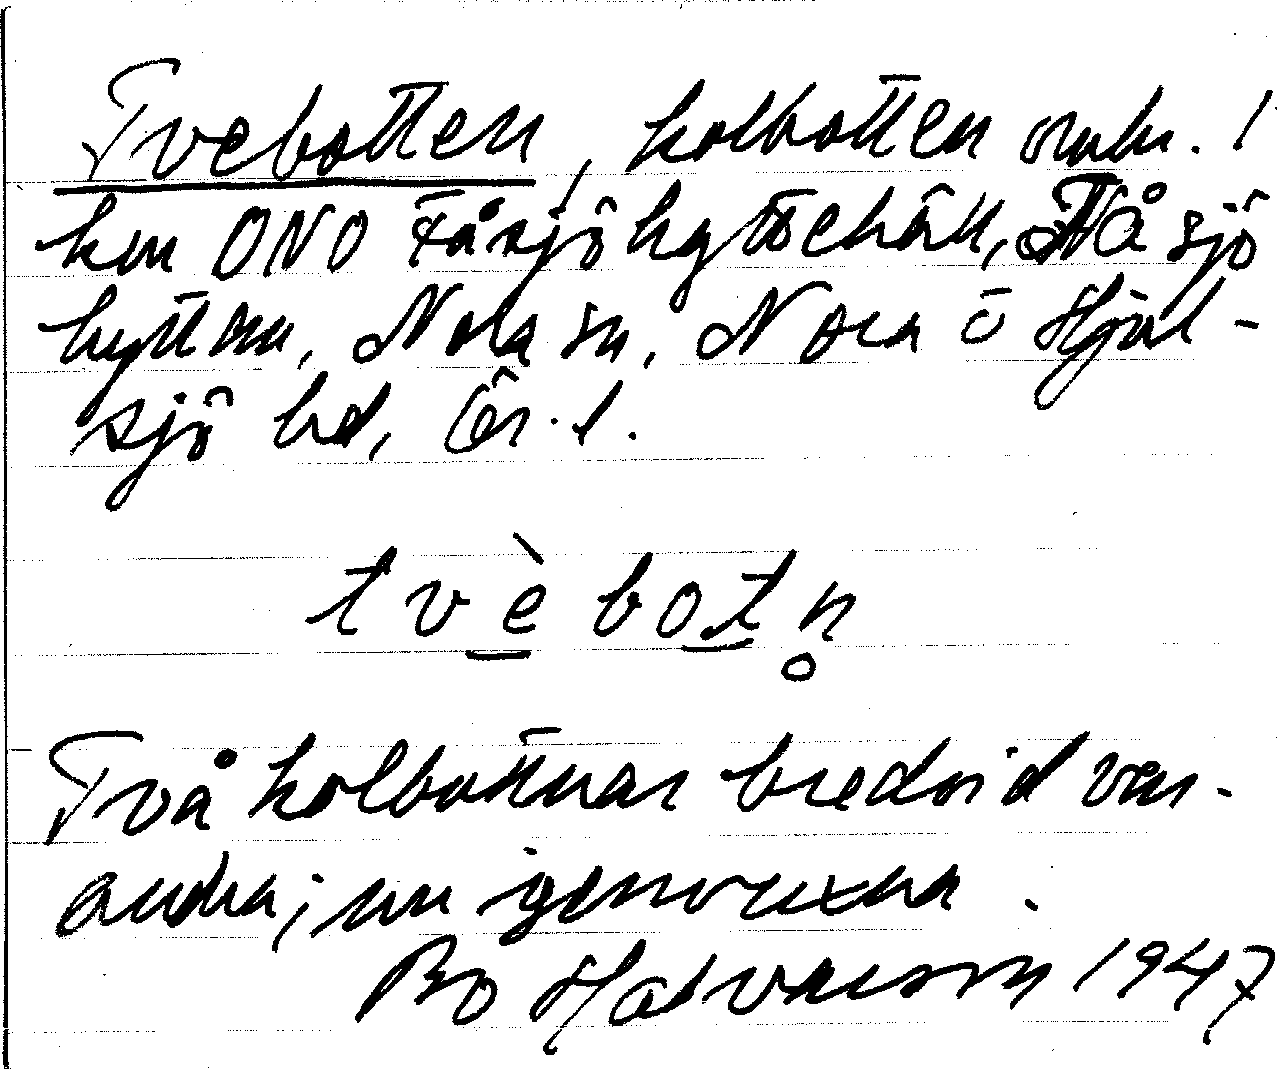 Tvebotten, kolbotten omkr. 1
km ONO Fåsjöhyttehäll, Fåsjö
hyttan, Nora sn, Nora o Hjul-
sjö bd, Ör. l.
tvèbotn̥
Två kolbottnar bredvid var-
andra; nu igenvuxna.
Bo Halvarson 1947